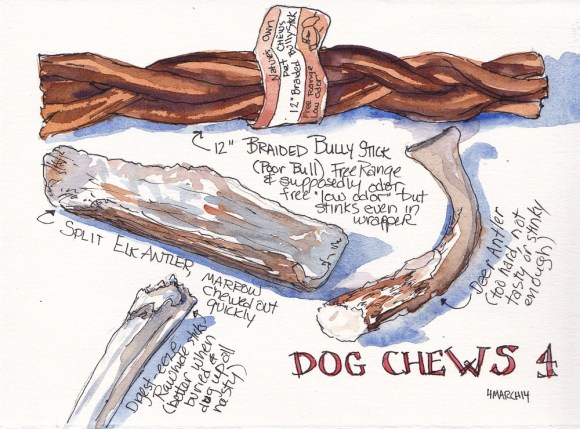 Nature's Own
Pet Chews
Bully Stick
12" Braided
Free Range
Low odor
12" BRAIDED BULLY STICK
(Poor Bull) Free Range
& supposedly odor
free "low odor" but
stinks even in
wrapper
SPLIT ELK ANTLER,
MARROW
chewed out
quickly
Deer Antler
(too hard, not
tasty or stinky
enough)
Digest-eeze
Rawhide stick
(better when
buried &
dug up all
nasty)
DOG CHEWS 4
4MARCH14